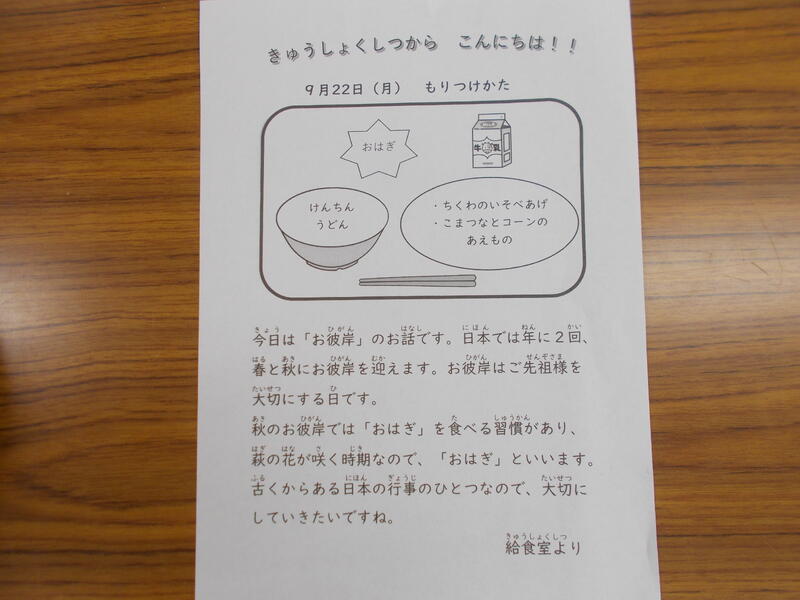 きゅうしょくしつから　こんにちは！！
９月22日（月）　もりつけかた
おはぎ
牛乳
けんちん
うどん
・ちくわのいそべあげ
・こまつなとコーンの
あえもの
今日は「お彼岸」のお話です。日本では年に２回、
春と秋にお彼岸を迎えます。お彼岸はご先祖様を
大切にする日です。
秋のお彼岸では「おはぎ」を食べる習慣があり、
萩の花が咲く時期なので、「おはぎ」といいます。
古くからある日本の行事のひとつなので、大切に
していきたいですね。
給食室より